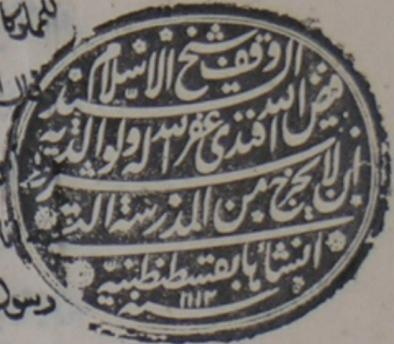 وقف شيخ الاسلام السيد
فيض الله افندى غفر الله له ولوالديه
بشرط ان لا يخرج من المدرسة التى
انشأها بقسطنطينية
سنه ١١١٣
رسول